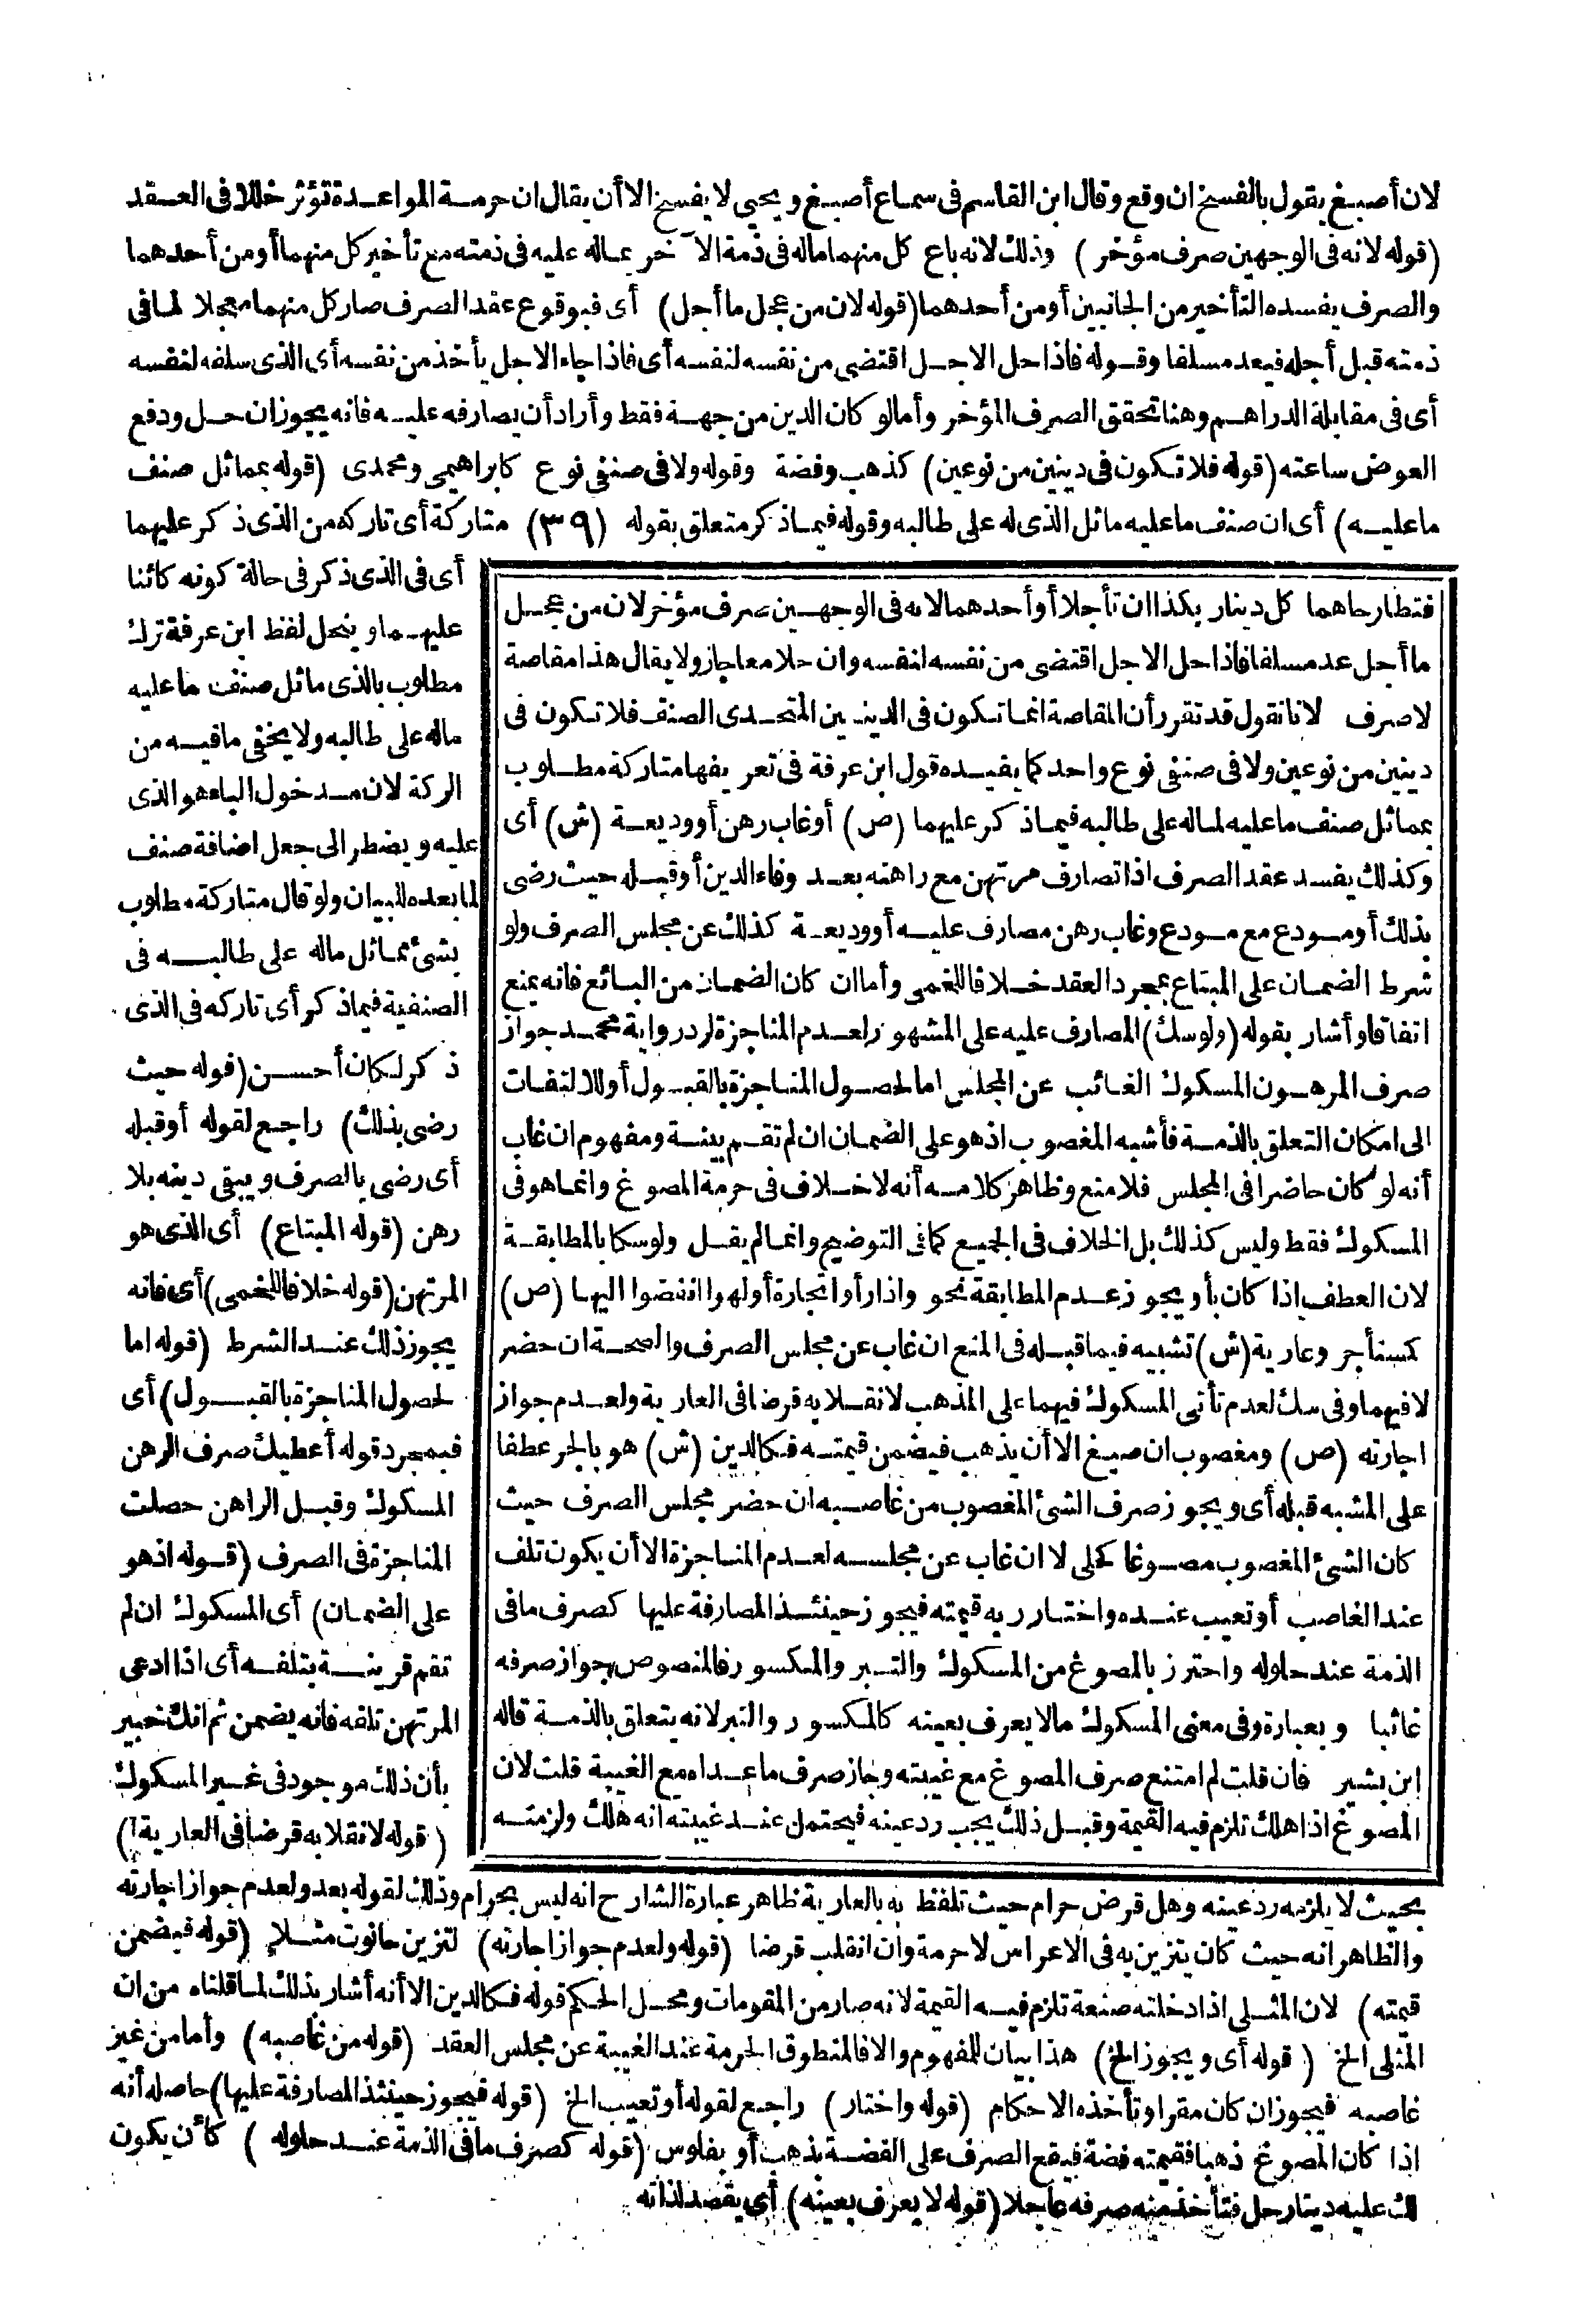 لان أصبغ يقول بالفسخ ان وقع وقال ابن القاسم فى سماع أصبغ ويحيى لا يفسخ الا أن يقال ان حرمة المواعدة تؤثر خللا فى العقد
(قوله لانه فى الوجهين صرف مؤخر) وذلك لانه باع كل منهما ماله فى ذمة الآخر بماله عليه فى ذمته مع تأخير كل منهما أو من أحدهما
والصرف يفسده التأخير من الجانبين أو من أحدهما (قوله لان من عجل ما أجل) أى فبوقوع عقد الصرف صار كل منهما معجلا لما فى
ذمته قبل أجله فيعد مسلفا وقوله فاذا حل الاجل اقتضى من نفسه لنفسه أى فاذا جاء الاجل يأخذ من نفسه أى الذى سلفه لنفسه
أى فى مقابلة الدراهم وهنا تحقق الصرف المؤخر وأما لو كان الدين من جهة فقط وأراد أن يصارفه عليه فانه يجوز ان حل ودفع
العوض ساعته (قوله فلا تكون فى دينين من نوعين) كذهب وفضة وقوله ولا فى صنفى نوع كابراهيمى ومحمدى (قوله بمماثل صنف
ما عليه) أى ان صنف ما عليه ماثل الذى له على طالبه وقوله فيما ذكر متعلق بقوله (٣٩) متاركة أى تاركه من الذى ذكر عليهما
فتطارحاهما كل دينار بكذا ان تأجلا أو أحدهما لانه فى الوجهين صرف مؤخر لان من عجل
ما أجل عد مسلفا فاذا حل الاجل اقتضى من نفسه لنفسه وان حلا معا جاز ولا يقال هذا مقاصة
لا صرف لانا نقول قد تقرر أن المقاصة انما تكون فى الدينين المتحدى الصنف فلا تكون فى
دينين من نوعين ولا فى صنفى نوع واحد كما يفيده قول ابن عرفة فى تعريفها متاركة مطلوب
بمماثل صنف ما عليه لماله على طالبه فيما ذكر عليهما (ص) أو غاب رهن أو وديعة (ش) أى
وكذلك يفسد عقد الصرف اذا تصارف مرتهن مع راهنه بعد وفاء الدين أو قبله حيث رضى
بذلك أو مودع مع مودع وغاب رهن مصارف عليه أو وديعة كذلك عن مجلس الصرف ولو
شرط الضمان على المبتاع بمجرد العقد خلافا للخمى وأما ان كان الضمان من البائع فانه يمنع
اتفاقا وأشار بقوله (ولو سك) المصارف عليه على المشهور لعدم المناجزة لرد رواية محمد جواز
صرف المرهون المسكوك الغائب عن المجلس اما لحصول المناجزة بالقبول أو للالتفات
الى امكان التعلق بالذمة فأشبه المغصوب اذ هو على الضمان ان لم تقم بينة ومفهوم ان غاب
أنه لو كان حاضرا فى المجلس فلا منع وظاهر كلامه أنه لا خلاف فى حرمة المصوغ وانما هو فى
المسكوك فقط وليس كذلك بل الخلاف فى الجميع كما فى التوضيح وانما لم يقل ولو سكا بالمطابقة
لان العطف اذا كان بأو يجوز عدم المطابقة نحو واذا رأوا تجارة أو لهوا انفضوا اليها (ص)
كمستأجر وعارية (ش) تشبيه فيما قبله فى المنع ان غاب عن مجلس الصرف والصحة ان حضر
لا فيهما وفى سك لعدم تأتى المسكوك فيهما على المذهب لانقلابه قرضا فى العارية ولعدم جواز
اجارته (ص) ومغصوب ان صيغ الا أن يذهب فيضمن قيمته فكالدين (ش) هو بالجر عطفا
على المشبه قبله أى ويجوز صرف الشئ المغصوب من غاصبه ان حضر مجلس الصرف حيث
كان الشئ المغصوب مصوغا كحلى لا ان غاب عن مجلسه لعدم المناجزة الا أن يكون تلف
عند الغاصب أو تعيب عنده واختار ربه قيمته فيجوز حينئذ المصارفة عليها كصرف ما فى
الذمة عند حلوله واحترز بالمصوغ من المسكوك والتبر والمكسور فالمنصوص جواز صرفه
غائبا وبعبارة وفى معنى المسكوك مالا يعرف بعينه كالمكسور والتبر لانه يتعلق بالذمة قاله
ابن بشير فان قلت لم امتنع صرف المصوغ مع غيبته وجاز صرف ما عداه مع الغيبة قلت لان
المصوغ اذا هلك تلزم فيه القيمة وقبل ذلك يجب رد عينه فيحتمل عند غيبته انه هلك ولزمته
أى فى الذى ذكر فى حالة كونه كائنا
عليهما وينحل لفظ ابن عرفة ترك
مطلوب بالذى ماثل صنف ما عليه
ماله على طالبه ولا يخفى ما فيه من
الركة لان مدخول الباء هو الذى
عليه ويضطر الى جعل اضافة صنف
لما بعده للبيان ولو قال متاركة مطلوب
بشئ مماثل ماله على طالبه فى
الصنفية فيما ذكر أى تاركه فى الذى
ذكر لكان أحسن (قوله حيث
رضى بذلك) راجع لقوله أو قبله
أى رضى بالصرف ويبقى دينه بلا
رهن (قوله المبتاع) أى الذى هو
المرتهن (قوله خلافا للخمى) أى فانه
يجوز ذلك عند الشرط (قوله اما
لحصول المناجزة بالقبول) أى
فبمجرد قوله أعطيك صرف الرهن
المسكوك وقبل الراهن حصلت
المناجزة فى الصرف (قوله اذ هو
على الضمان) أى المسكوك ان لم
تقم قرينة بتلفه أى اذا ادعى
المرتهن تلفه فانه يضمن ثم انك خبير
بأن ذلك موجود فى غير المسكوك
(قوله لانقلابه قرضا فى العارية)
بحيث لا يلزمه رد عينه وهل قرض حرام حيث تلفظ به بالعارية ظاهر عبارة الشارح انه ليس بحرام وذلك لقوله بعد ولعدم جواز اجارته
والظاهر انه حيث كان يتزين به فى الاعراس لا حرمة وان انقلب قرضا (قوله ولعدم جواز اجارته) لتزين حانوت مثلا (قوله فيضمن
قيمته) لان المثلى اذا دخلته صنعة تلزم فيه القيمة لانه صار من المقومات ومحل الحكم قوله فكالدين الا أنه أشار بذلك لما قلناه من ان
المثلى الخ (قوله أى ويجوز الخ) هذا بيان للمفهوم والا فالمنطوق الحرمة عند الغيبة عن مجلس العقد (قوله من غاصبه) وأما من غير
غاصبه فيجوز ان كان مقرا وتأخذه الاحكام (قوله واختار) راجع لقوله أو تعيب الخ (قوله فيجوز حينئذ المصارفة عليها) حاصله أنه
اذا كان المصوغ ذهبا فقيمته فضة فيقع الصرف على الفضة بذهب أو بفلوس (قوله كصرف ما فى الذمة عند حلوله) كأن يكون
لك عليه دينار حل فتأخذ منه صرفه عاجلا (قوله لا يعرف بعينه) أى يقصد لذاته